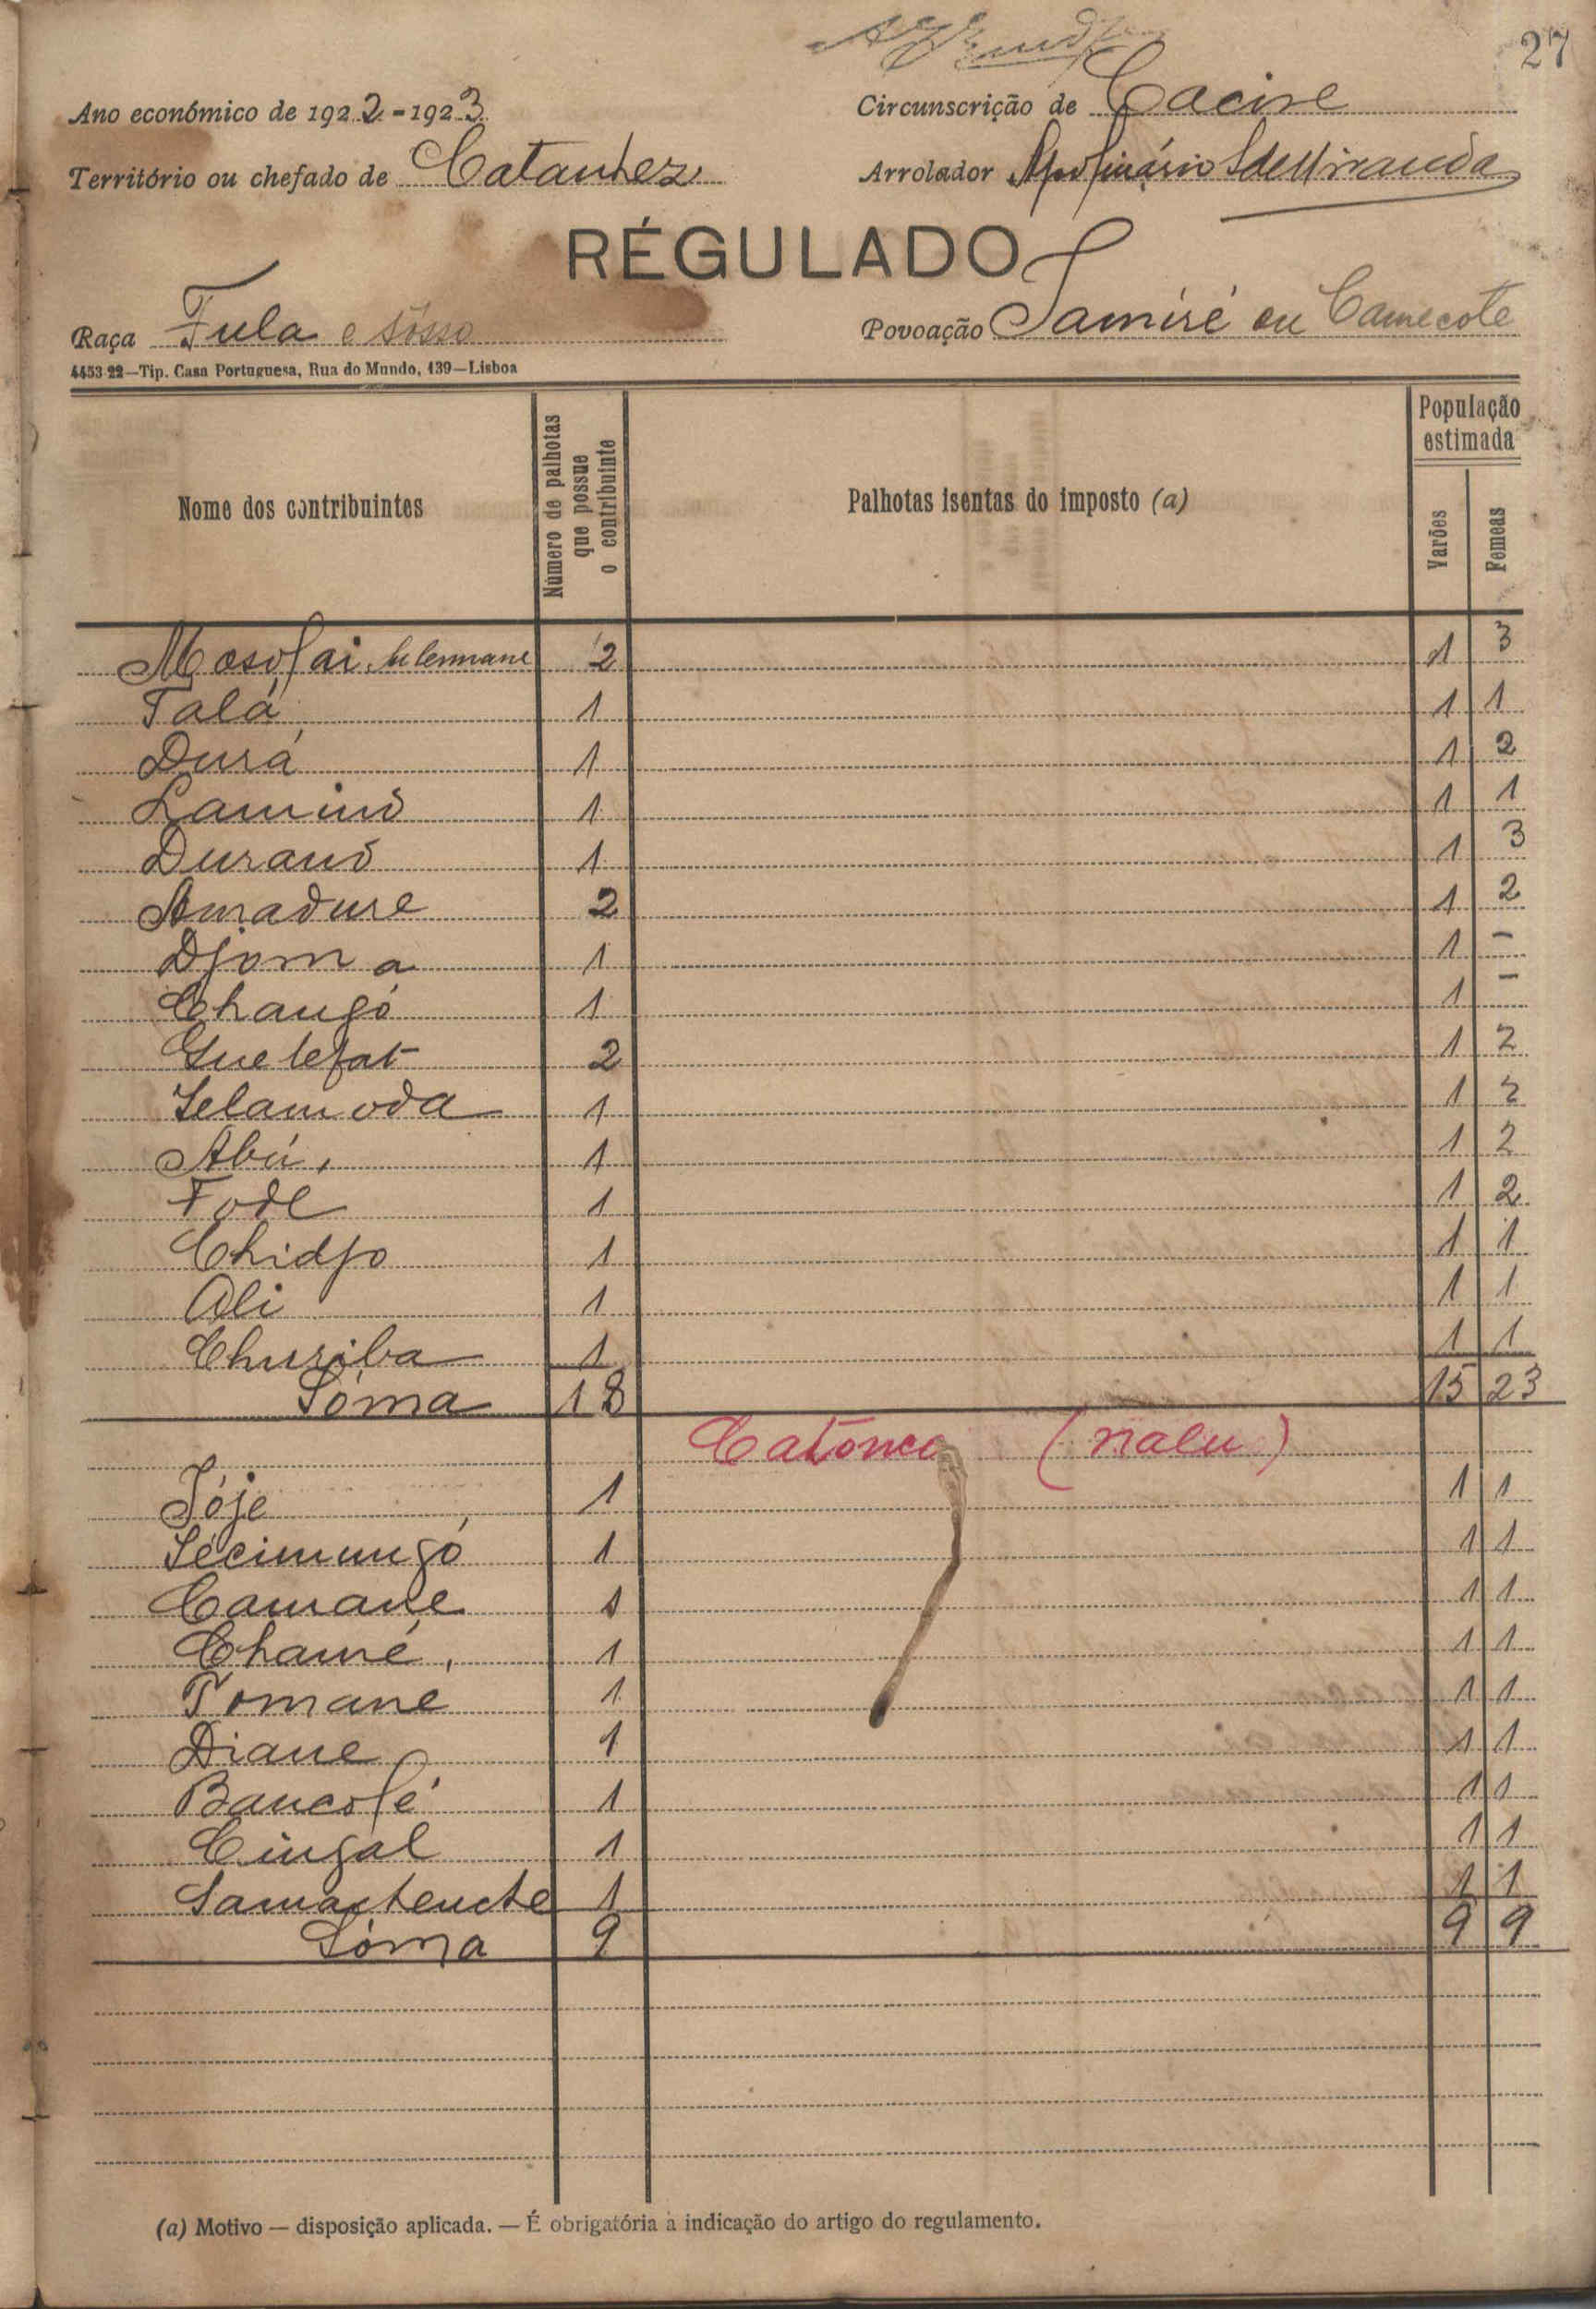 27
Ano económico de 1922-1923
Circunscrição de Cacine
Território ou chefado de Catanhez
Arrolador Apolinário S de Miranda
RÉGULADO
Raça Fula e Sôsso
Povoação Samiré ou Camecote
4453-22—Tip. Casa Portuguesa, Rua do Mundo, 139—Lisboa
Nome dos contribuintes Número de palhotas que possue o contribuinte Palhotas isentas do imposto (a) População estimada Varões Femeas
2 1 3
Talá 1 1 1
Durá 1 1 2
Laminó 1 1 1
Duranó 1 1 3
Amadure 2 1 2
Djoma 1 1 -
Changó 1 1 -
Guelefat 2 1 2
Selamoda 1 1 2
Abú, 1 1 2
Fode 1 1 2
Chidjo 1 1 1
Ali 1 1 1
Churiba 1 1 1
Sôma 18 15 23
Catõnco (nalu)
Jóje 1 1 1
Sécimungó 1 1 1
Camane 1 1 1
Chamé, 1 1 1
Tomane 1 1 1
Diane 1 1 1
Bancolé 1 1 1
Cingal 1 1 1
Samactencte 1 1 1
Sôma 9 9 9
(a) Motivo — disposição aplicada. — É obrigatória a indicação do artigo do regulamento.